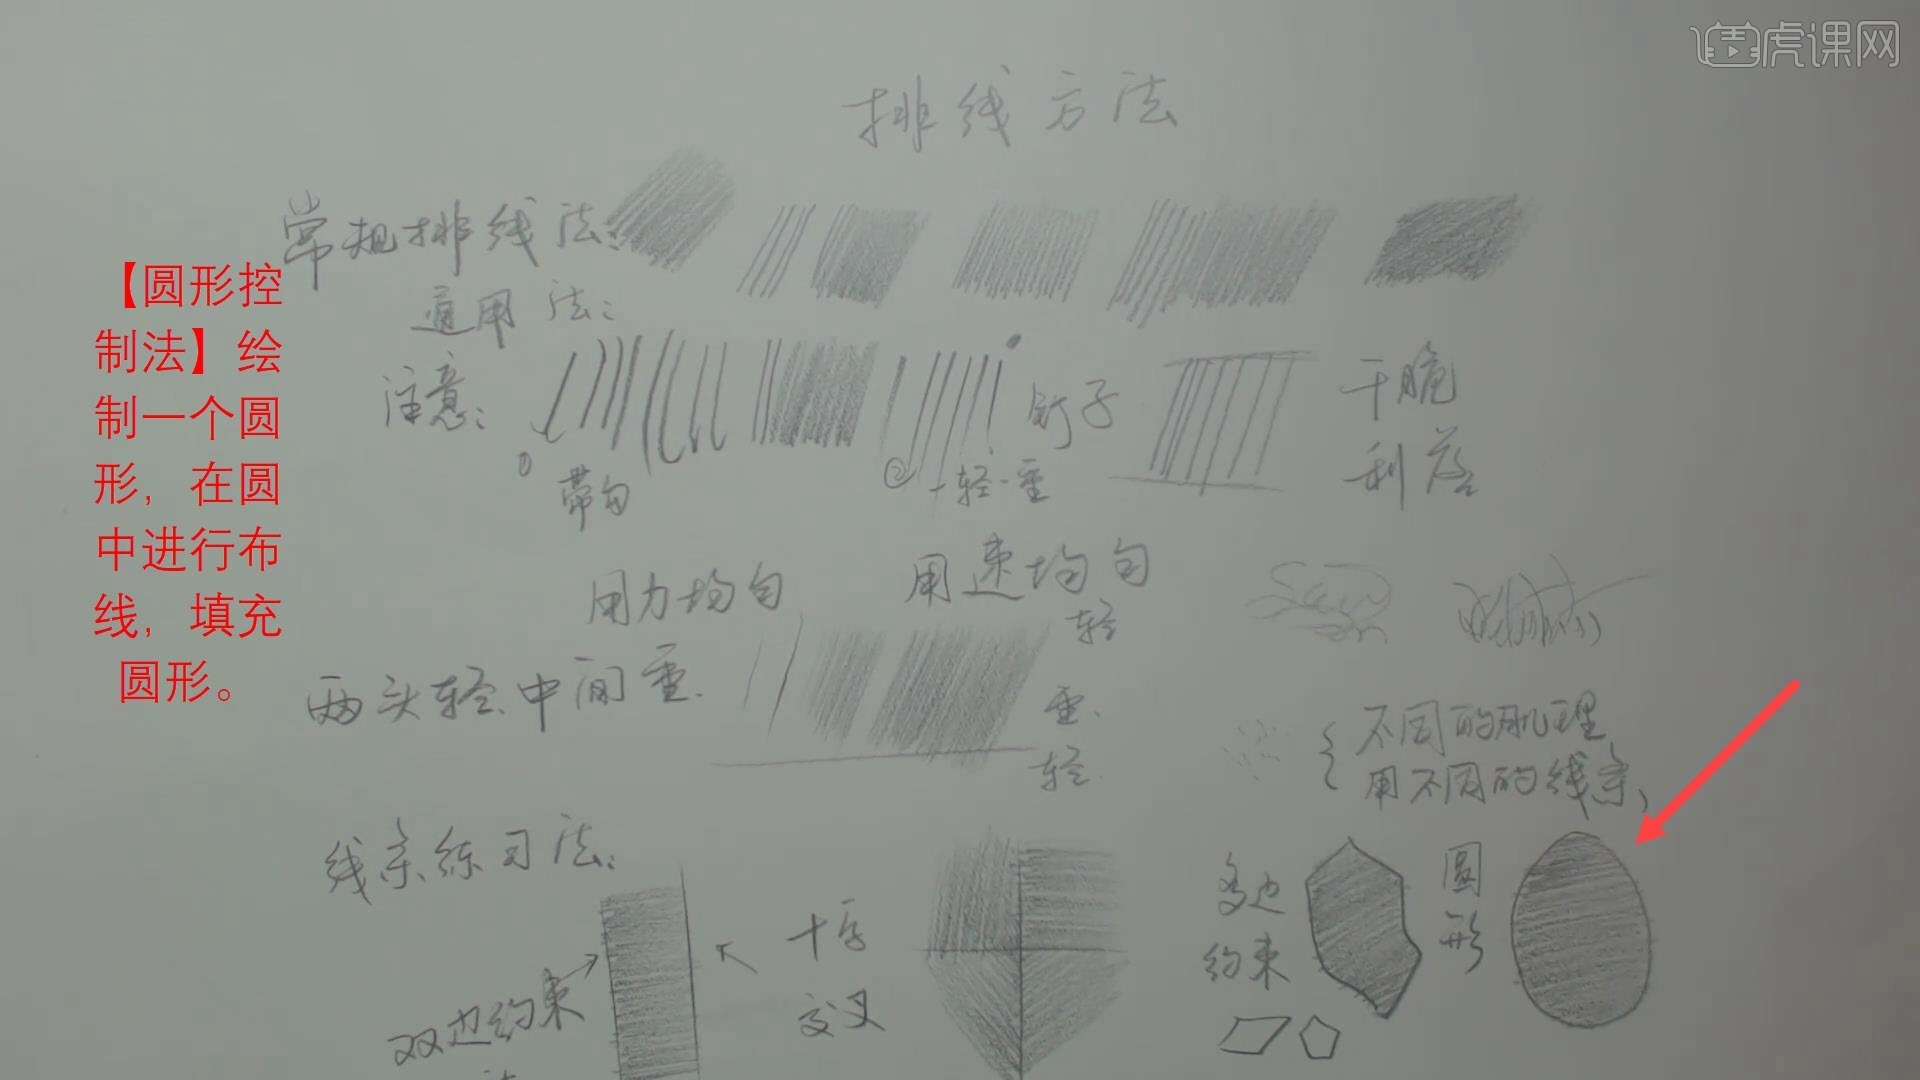 虎课网
排线方法
常规排线法:
通用法:
【圆形控
制法】绘
制一个圆
形，在圆
中进行布
线，填充
圆形。
注意:
① 带勾
② 一轻一重
钉子
干脆
利落
用力均匀
用速均匀
两头轻、中间重.
轻
重、
轻.
不同的肌理
用不同的线条,
线条练习法:
双边约束
法
十字
交叉
多边
约束
圆
形